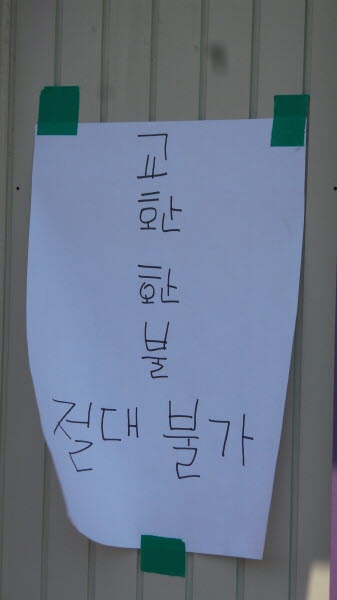 교환 환불
절대 불가